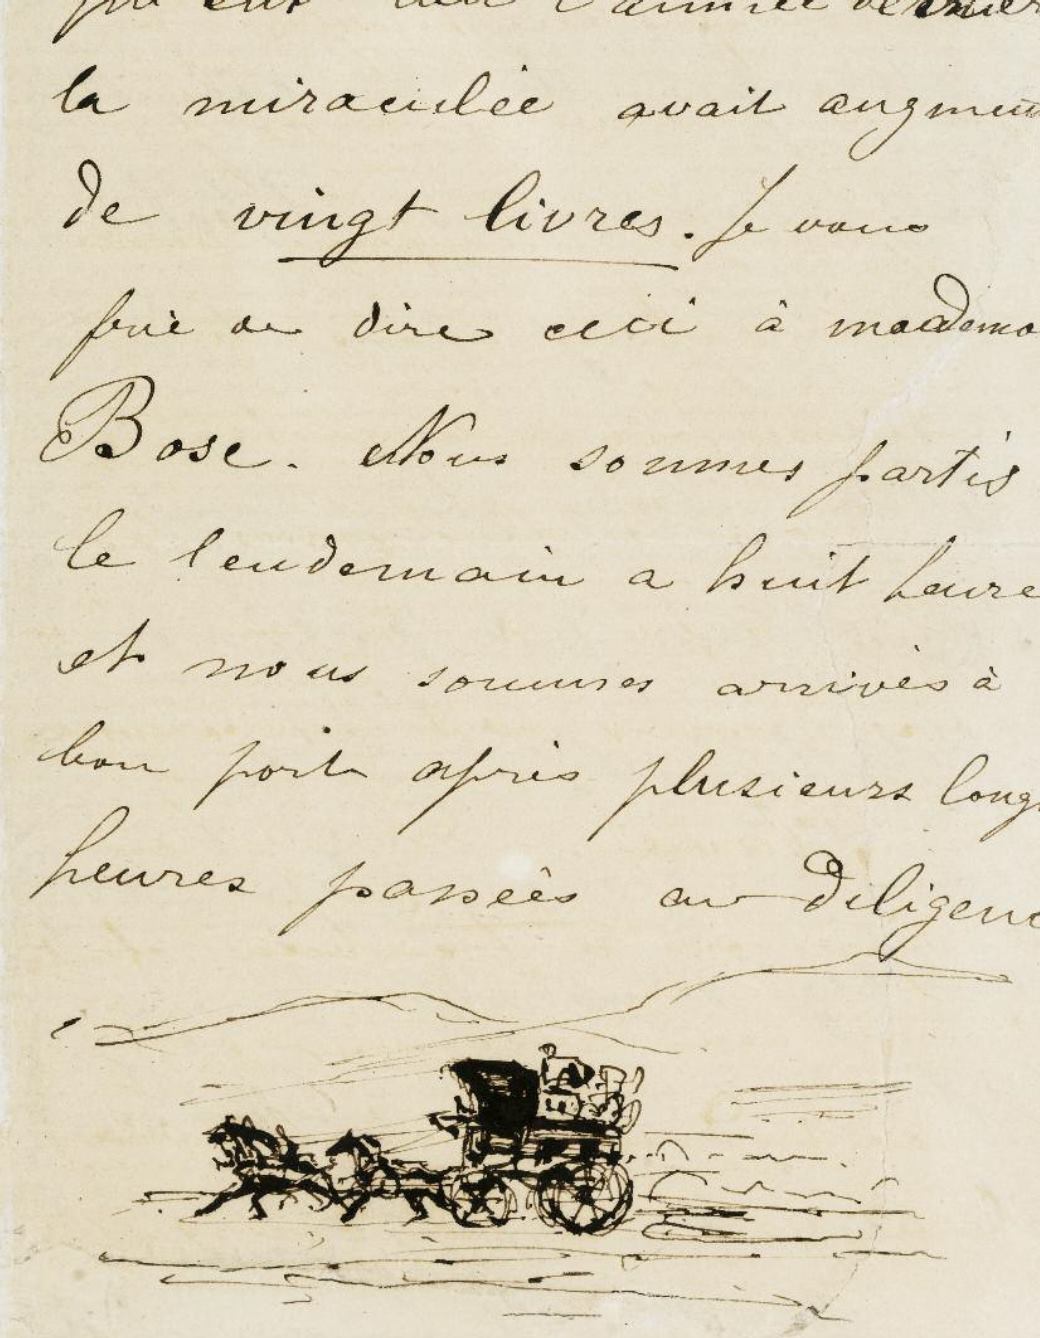 l'année dernier
la miraculée avait augmen
de vingt livres. Je vous
prie de dire ceci à mademo
Bose. Nous sommes partis
le lendemain a huit heure
et nous sommes arrivés à
bon port après plusieurs long
heures passées en diligenc